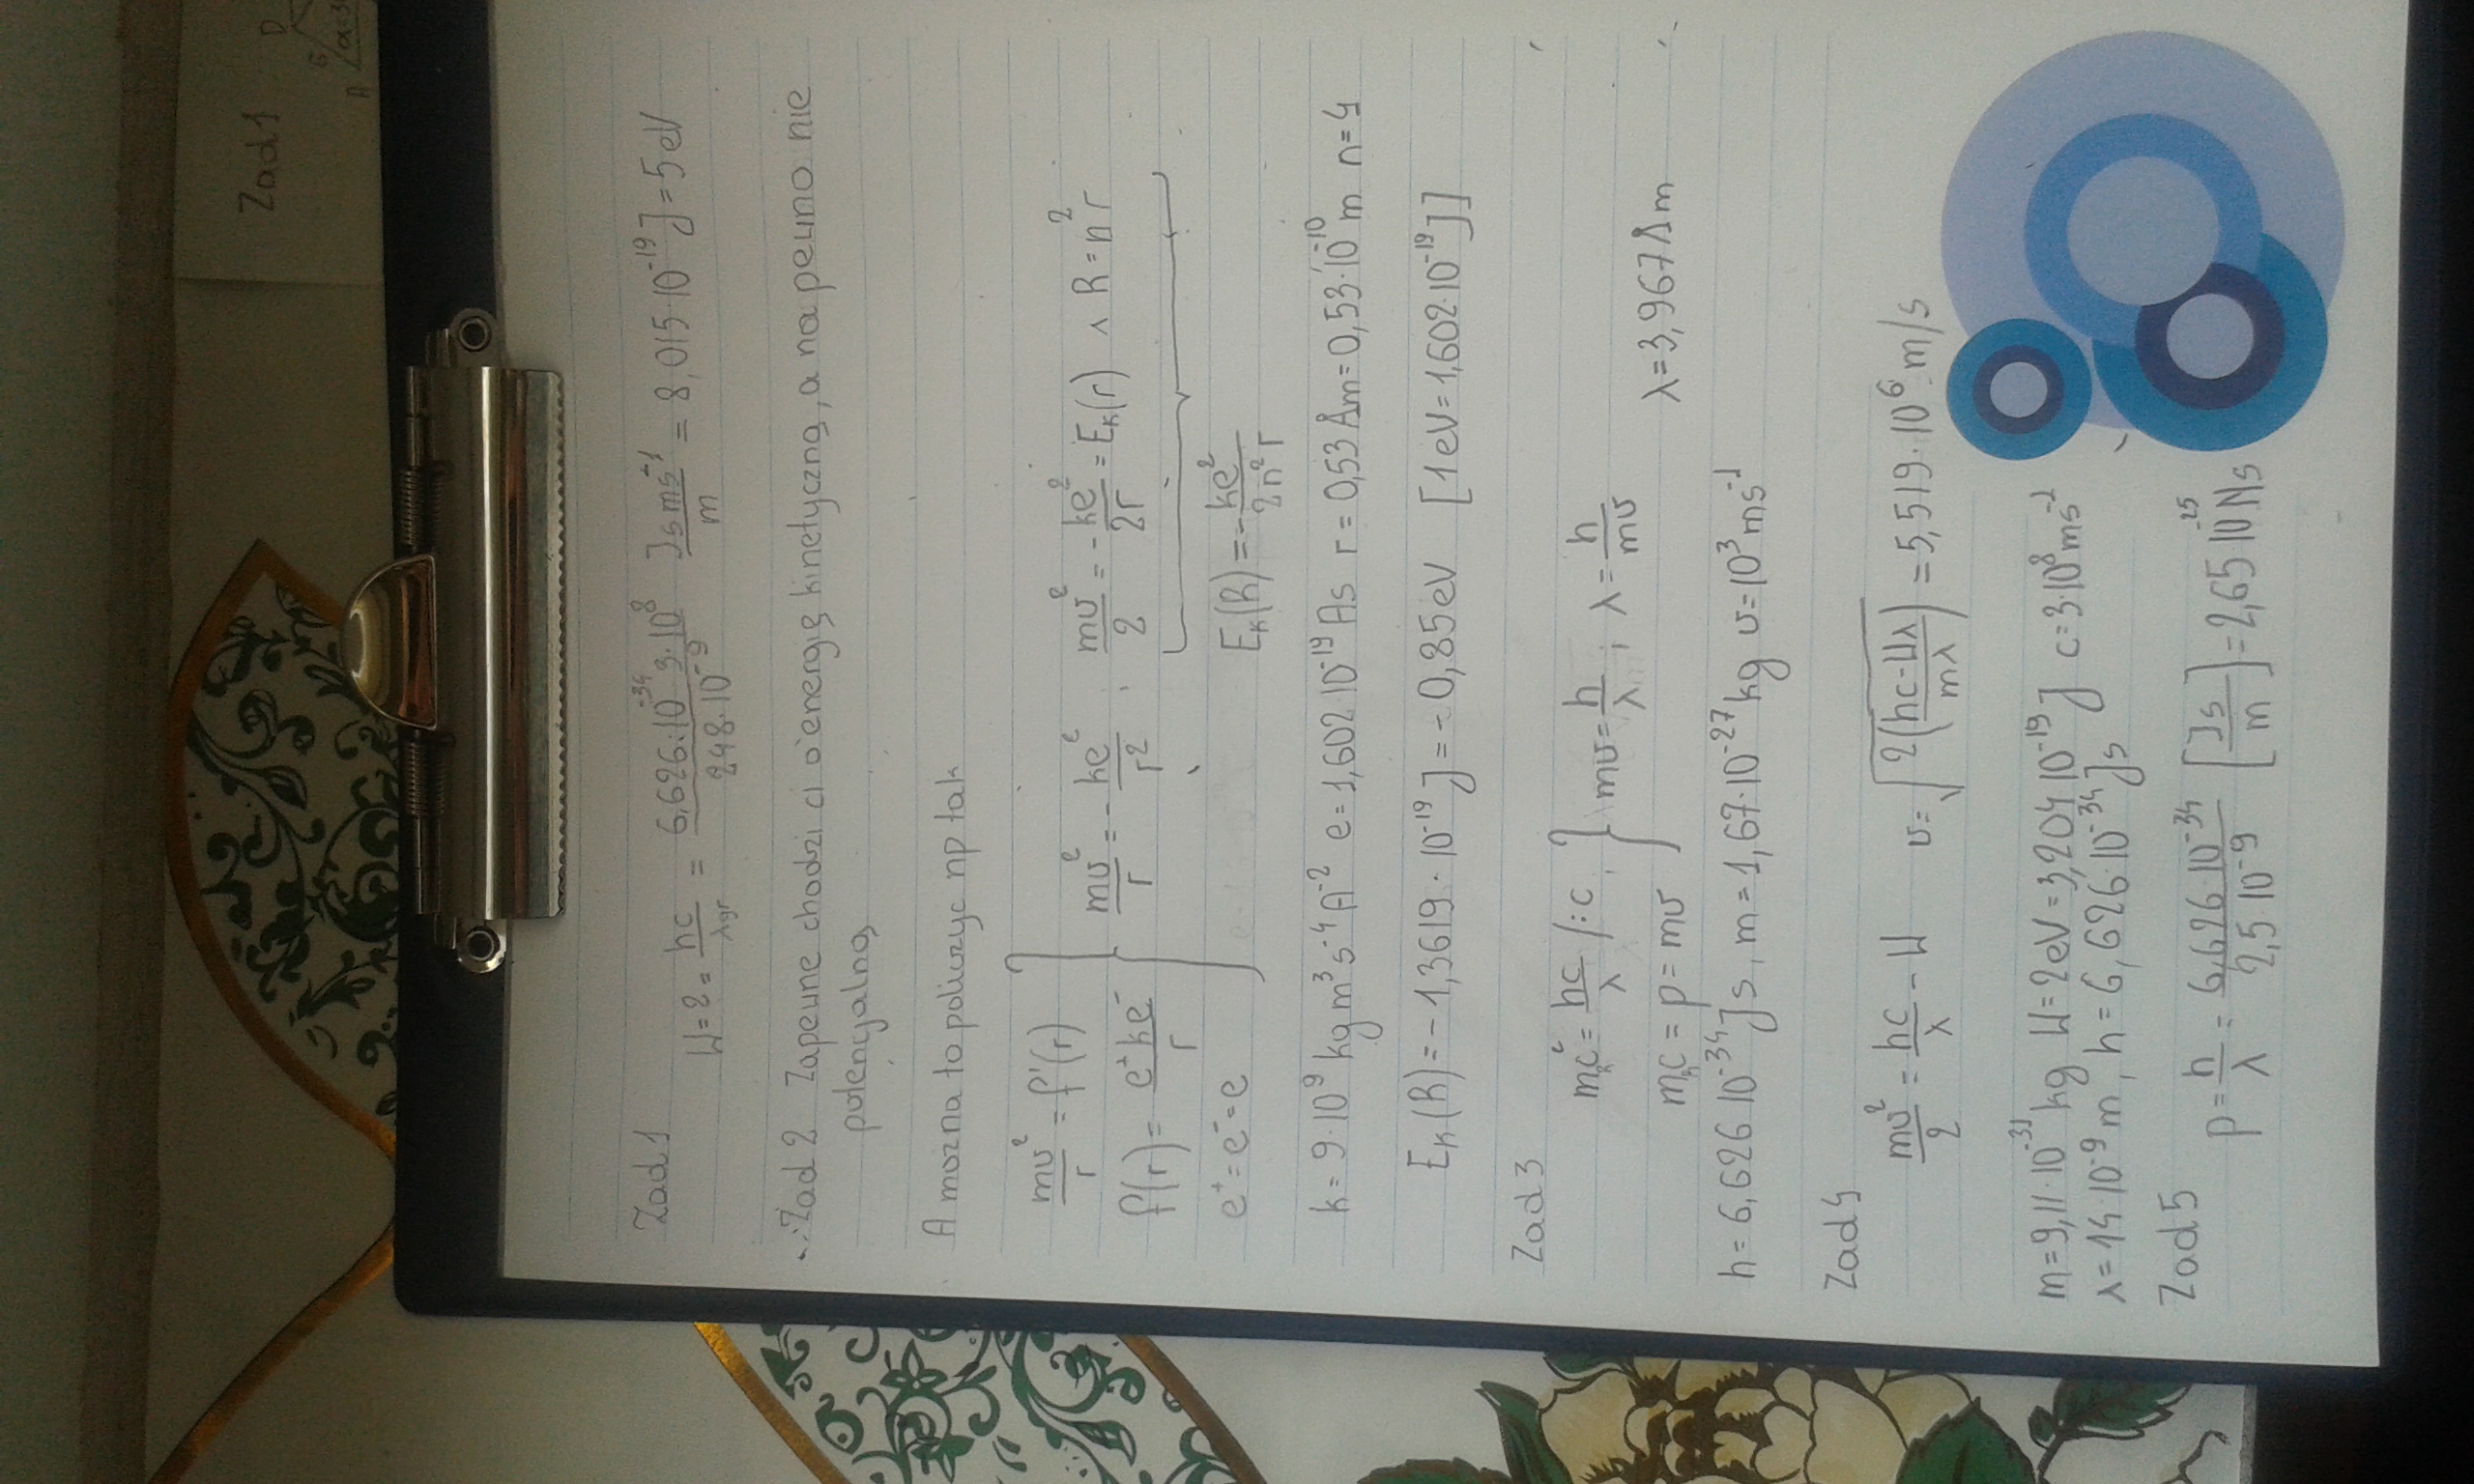 Zad1
D
6
a=3
A
Zad1
W=?=hc/λgr = 6,626·10^-34·3·10^8/248·10^-9 Jsms^-1/m = 8,015·10^-19 J=5eV
Zad2 Zapewne chodzi ci o energię kinetyczną, a na pewno nie
potencjalną
A można to policzyc np tak
mv²/r = f'(r)
f(r)= e⁺ke⁻/r
e⁺=e⁻=e
mv²/r = -ke²/r²
mv²/2 = -ke²/2r = Ek(r) ∧ R=n²r
Ek(R)=-ke²/2n²r
k=9·10^9 kgm^3s^-4A^-2 e=1,602·10^-19As r=0,53Åm=0,53·10^-10m n=4
Ek(R)=-1,3619·10^-19J=-0,85eV [1eV=1,602·10^-19J]
Zad3
mc²=hc/λ /:c
mc=p=mv
mv=h/λ ; λ=h/mv
λ=3,967Åm
h=6,626·10^-34Js, m=1,67·10^-27kg v=10^3ms^-1
Zad4
mv²/2=hc/λ-W v=√2(hc-Wλ/mλ)=5,519·10^6 m/s
m=9,11·10^-31kg W=2eV=3,204·10^-19J c=3·10^8ms^-1
λ=14·10^-9m, h=6,626·10^-34Js
Zad5
p=h/λ=6,626·10^-34/2,5·10^-9 [Js/m]=2,65 10^-25Ns